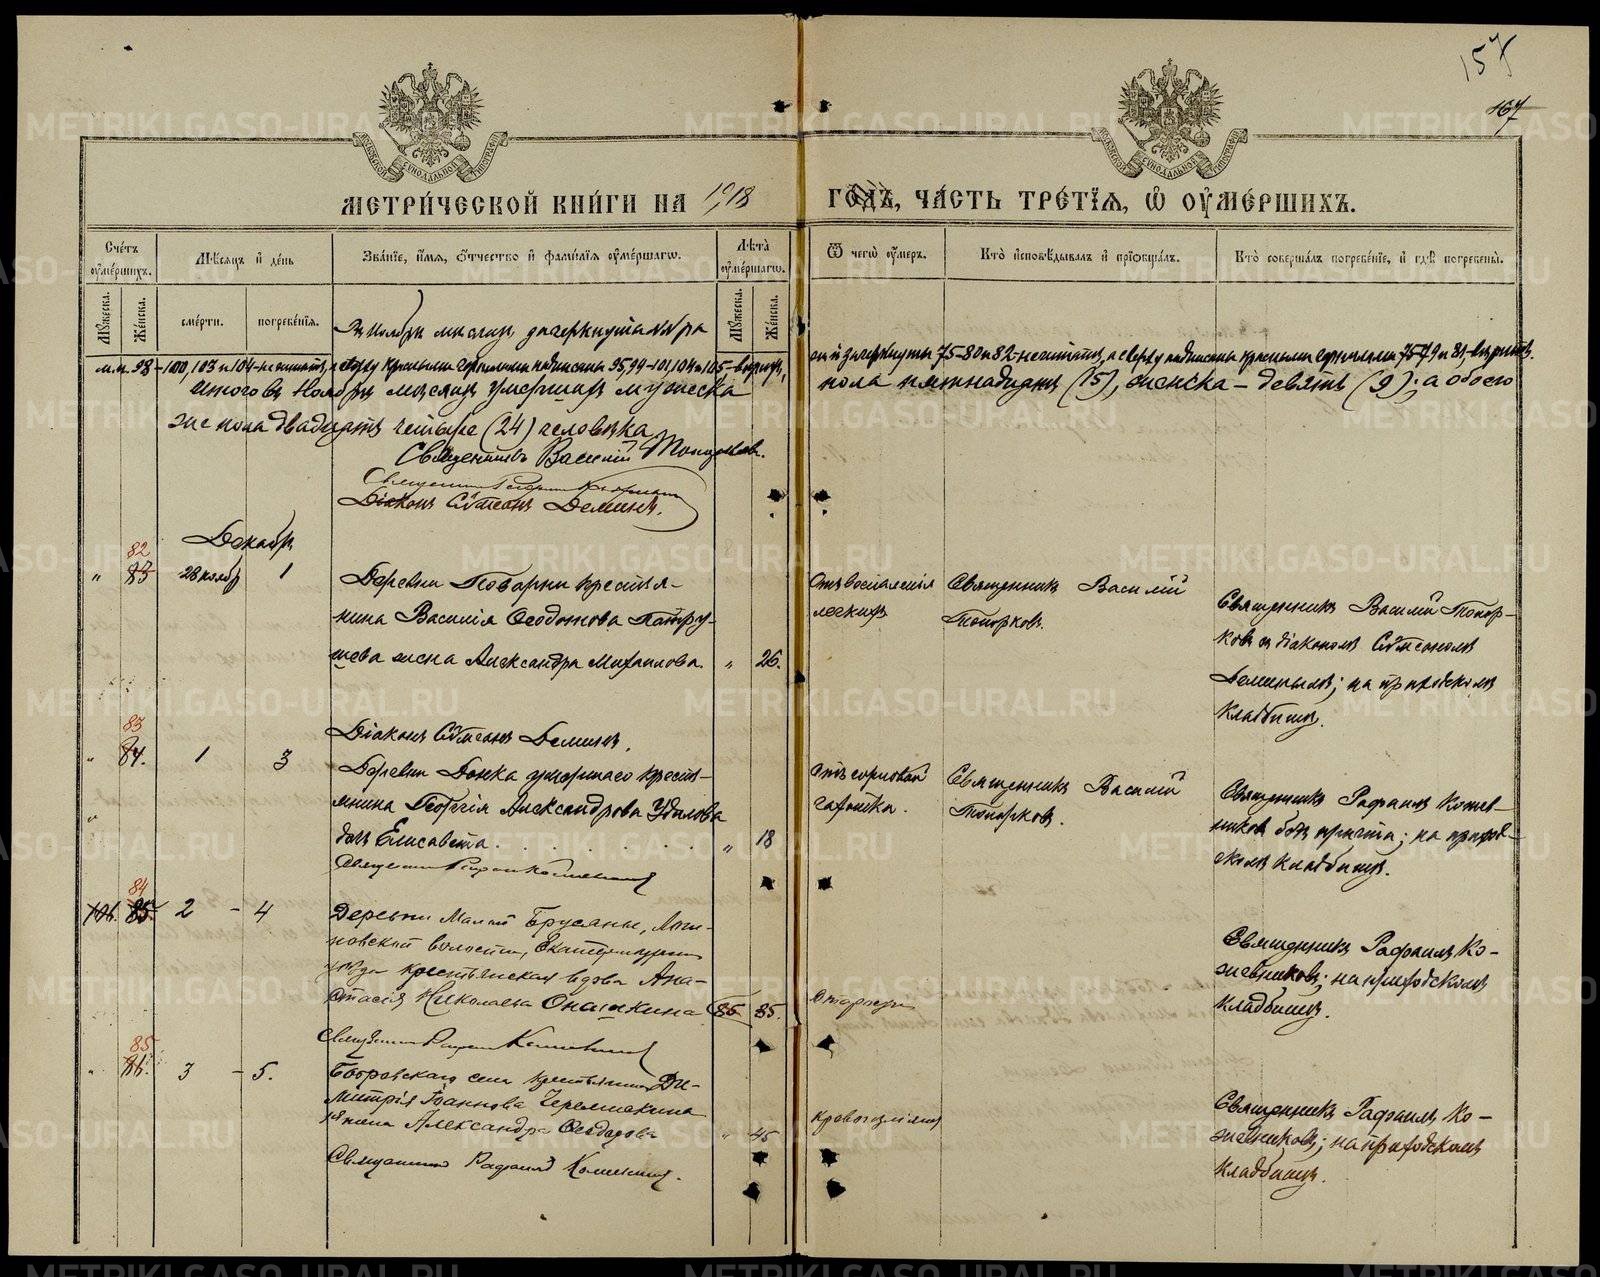 157
167
МЕТРИ́ЧЕСКОЙ КНИ́ГИ НА 1918 ГО́ДЪ, ЧА́СТЬ ТРЕ́ТЇѦ, Ѡ҆ ОУ҆МЕ́РШИХЪ.
Сче́тъ оу҆ме́ршихъ.
Мꙋ́жеска.
Же́нска.
Мѣ́сѧцъ и҆ де́нь
сме́рти.
погребе́нїѧ.
Зва́нїе, и҆́мѧ, ѻ҆́тчество и҆ фами́лїѧ оу҆ме́ршагѡ.
Лѣ́та оу҆ме́ршагѡ.
Мꙋ́жеска.
Же́нска.
Ѿ чегѡ̀ оу҆́меръ.
Кто̀ и҆сповѣ́дывалъ и҆ прїѡбща́лъ.
Кто̀ соверша́лъ погребе́нїе, и҆ гдѣ̀ погребены̀.
Въ Ноябрѣ мѣсяцѣ зачеркнуты №№ра
м.п. 98-100, 103 и 104-не считать, а сверху красными чернилами надписаны 95, 99-101, 104 и 105-вѣрить,
они зачеркнуты 75-80 и 82-не считать, а сверху надписаны красными чернилами 75-79 и 81-вѣрить.
Итого въ Ноябрѣ мѣсяцѣ умершихъ мужеска
пола пятнадцать (15), женска - девять (9); а обоего
же пола двадцать четыре (24) человѣка
Священникъ Василій Топорковъ.
Діаконъ Сѵмеонъ Деминъ.
Декабрь
82
" 83 28 ноябр 1
Деревни Поварни крестья-
нина Василія Ѳеодотова Патру-
шева жена Александра Михаилова. " 26.
Отъ воспаленія
легкихъ
Священникъ Василій
Топорковъ.
Священникъ Василій Топор-
ковъ съ діакономъ Сѵмеономъ
Деминымъ; на приходскомъ
кладбищѣ.
Діаконъ Сѵмеонъ Деминъ.
83
" 84. 1 3
Деревни Боярка умершаго кресть-
янина Георгія Александрова Удалова
дочь Елисавета. " 18
Отъ горловой
чахотки.
Священникъ Василій
Топорковъ.
Священникъ Рафаилъ Кожев-
никовъ безъ причта; на приход-
скомъ кладбищѣ.
84
106. 85. 2 - 4
Деревни Малой Брусяны, Логи-
новской волости, Екатеринбургскаго
уѣзда крестьянская вдова Ана-
стасія Николаева Опалихина 85 85.
Старости
Священникъ Рафаилъ Ко-
жевниковъ; на приходскомъ
кладбищѣ.
85
" 86. 3 - 5.
Бобровскаго села крестьянина Ди-
митрія Іоаннова Черемисина
жена Александра Ѳеодорова " 45
Кровоизліянія
Священникъ Рафаилъ Ко-
жевниковъ; на приходскомъ
кладбищѣ.
Священникъ Рафаилъ Кожевниковъ.
METRIKI.GASO-URAL.RU